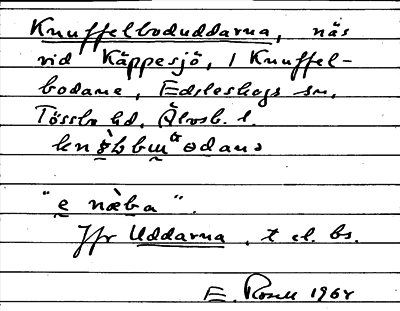 Knuffelboduddarna, näs
vid Käppesjö, / Knuffel-
bodane, Edsleskogs sn,
Tössbo hd, Älvsb. l.
"e næba".
Jfr Uddarna, t el. bs.
E. Rosell 1968